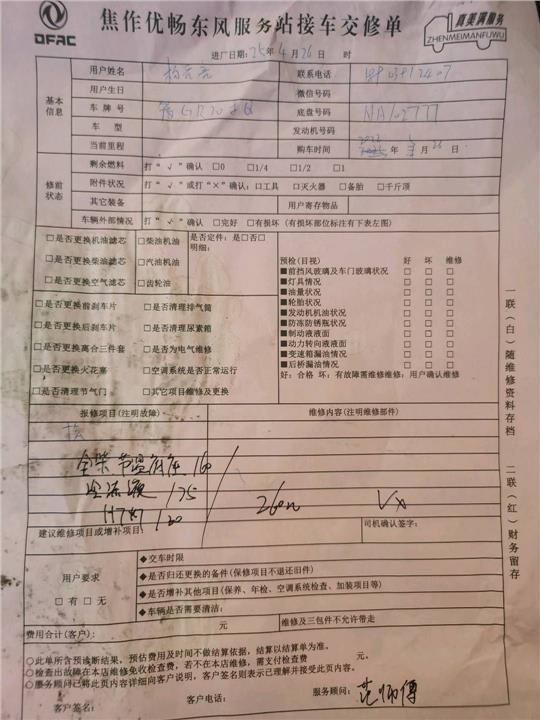 DFAC
焦作优畅东风服务站接车交修单
真美满服务
ZHENMEIMANFUWU
进厂日期:25年4月26日 时
基本信息
用户姓名
联系电话
用户生日
微信号码
车牌号
底盘号码 NA102777
车型
发动机号码
当前里程
购车时间 年 月26日
修前状态
剩余燃料 打“√”确认 □0 □1/4 □1/2 □1
附件状况 打“√”或打“×”确认:□工具 □灭火器 □备胎 □千斤顶
其它装备
用户寄存物品
车辆外部情况 打“√”确认 □完好 □有损坏(有损坏部位标注有下表左图)
□是否更换机油滤芯 □柴油机油 是否定件:是□否□
□是否更换柴油滤芯 □汽油机油 明细:
□是否更换空气滤芯 □齿轮油
□是否更换前刹车片 □是否清理排气筒
□是否更换后刹车片 □是否清理尿素箱
□是否更换离合三件套 □是否为电气维修
□是否更换火花塞 □空调系统是否正常运行
□是否清理节气门 □其它项目维修及更换
预检(目视) 好 坏 维修
■前挡风玻璃及车门玻璃状况 □ □ □
■灯具情况 □ □ □
■油量状况 □ □ □
■轮胎状况 □ □ □
■发动机机油状况 □ □ □
■防冻防锈瓶状况 □ □ □
■制动液液面 □ □ □
■动力转向液液面 □ □ □
■变速箱漏油情况 □ □ □
■后桥漏油情况 □ □ □
好:合格 坏:有故障需维修维修:用户确认维修
报修项目(注明故障)
维修内容(注明维修部件)
全柴节温底座 160
175
H7灯 120
260
建议维修项目或增补项目:
司机确认签字:
用户要求
□有□无
◆交车时限
◆是否归还更换的备件(保修项目不退还旧件)
◆是否增补其他项目(保养、年检、空调系统检查、加装项目等)
◆车辆是否需要清洁:
费用合计(客户): 元
维修及三包件不允许带走
○此单所含预诊断结果,预估费用及时间不做结算依据,结算以结算单为准。
○检查出故障在本店维修免收检查费,若不在本店维修,需支付检查费 元。
○服务顾问已将此页内容详细向客户说明,客户签名则表示已理解并接受此页内容。
客户签名:
客户电话:
服务顾问:
一联(白)随维修资料存档
二联(红)财务留存